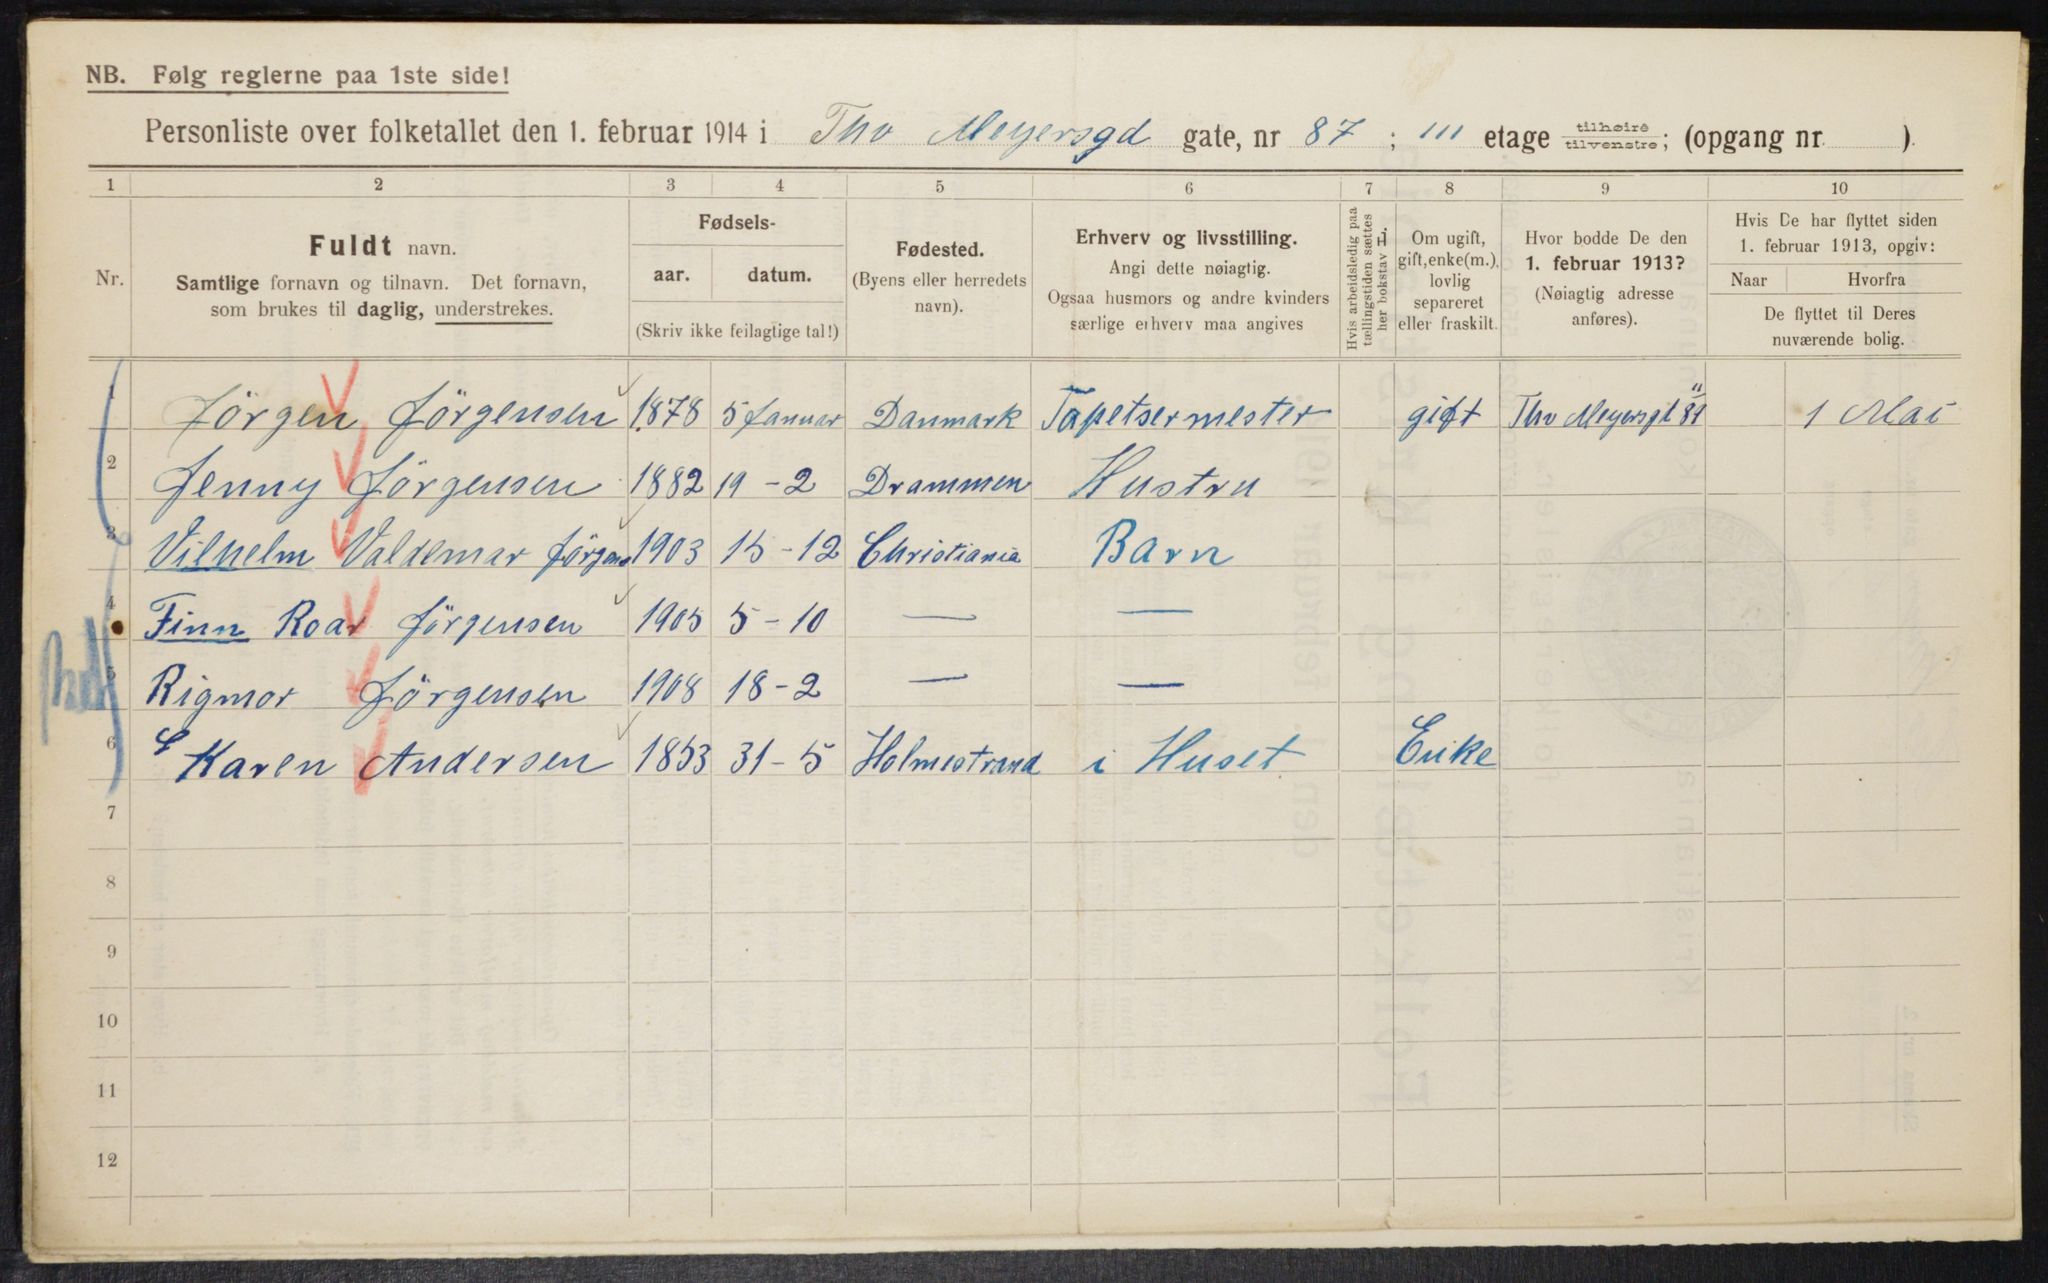 NB. Følg reglerne paa 1ste side!
Personliste over folketallet den 1. februar 1914 i Tho Meyersgd gate, nr 87 ; III etage tilhøire tilvenstre; (opgang nr. ).
1 2 3 4 5 6 7 8 9 10
Nr.
Fuldt navn.
Samtlige fornavn og tilnavn. Det fornavn,
som brukes til daglig, understrekes.
Fødsels-
aar. datum.
(Skriv ikke feilagtige tal!)
Fødested.
(Byens eller herredets
navn).
Erhverv og livsstilling.
Angi dette nøiagtig.
Ogsaa husmors og andre kvinders
særlige erhverv maa angives
Hvis arbeidsledig paa
tællingstiden sættes
her bokstav L.
Om ugift,
gift, enke(m.),
lovlig
separeret
eller fraskilt.
Hvor bodde De den
1. februar 1913?
(Nøiagtig adresse
anføres).
Hvis De har flyttet siden
1. februar 1913, opgiv:
Naar Hvorfra
De flyttet til Deres
nuværende bolig.
1 Jörgen Jörgensen 1878 5 Januar Danmark Tapetsermester gift Tho Meyersgt 89 1 Mai
2 Jenny Jörgensen 1882 19-2 Drammen Hustru
3 Vilhelm Valdemar 1903 15-12 Christiania Barn
4 Finn Roar Jörgensen 1905 5-10 — —
5 Rigmor Jörgensen 1908 18-2 — —
6 Karen Andersen 1853 31-5 Holmestrand i Huset Enke
7
8
9
10
11
12